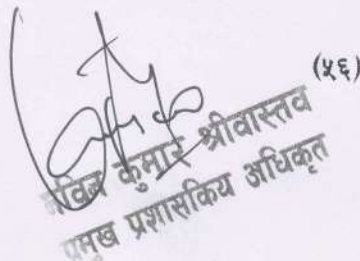 (५६)
कुमार श्रीवास्तव
प्रमुख प्रशासकिय अधिकृत